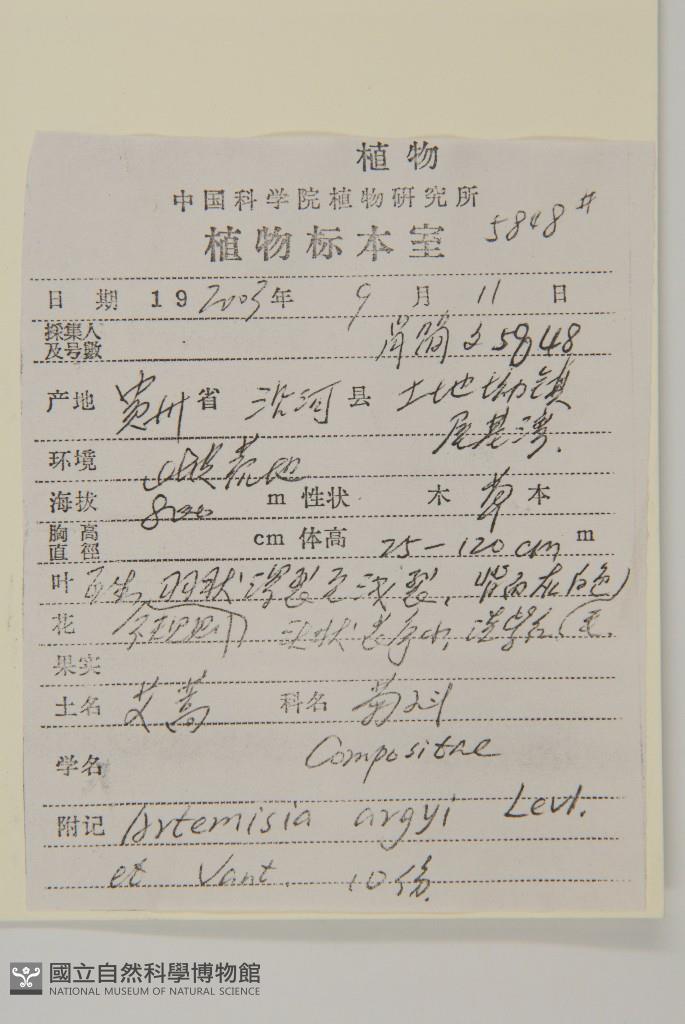 植物
中国科学院植物研究所
植物标本室 5848#
日期 19 2003年 9月 11日
採集人及号數 简 5848
产地 贵州省 沿河县 土地坳镇
尾基湾.
环境
海拔 800 m 性状 木 草 本
胸高直徑 cm 体高 25-120cm m
叶 互生, 羽状深裂至浅裂, 背面灰白色
花 状花序小,
果实
土名 艾蒿 科名 菊科
学名 Compositae
附记 Artemisia argyi Levl.
et Vant. 10份.
國立自然科學博物館
NATIONAL MUSEUM OF NATURAL SCIENCE